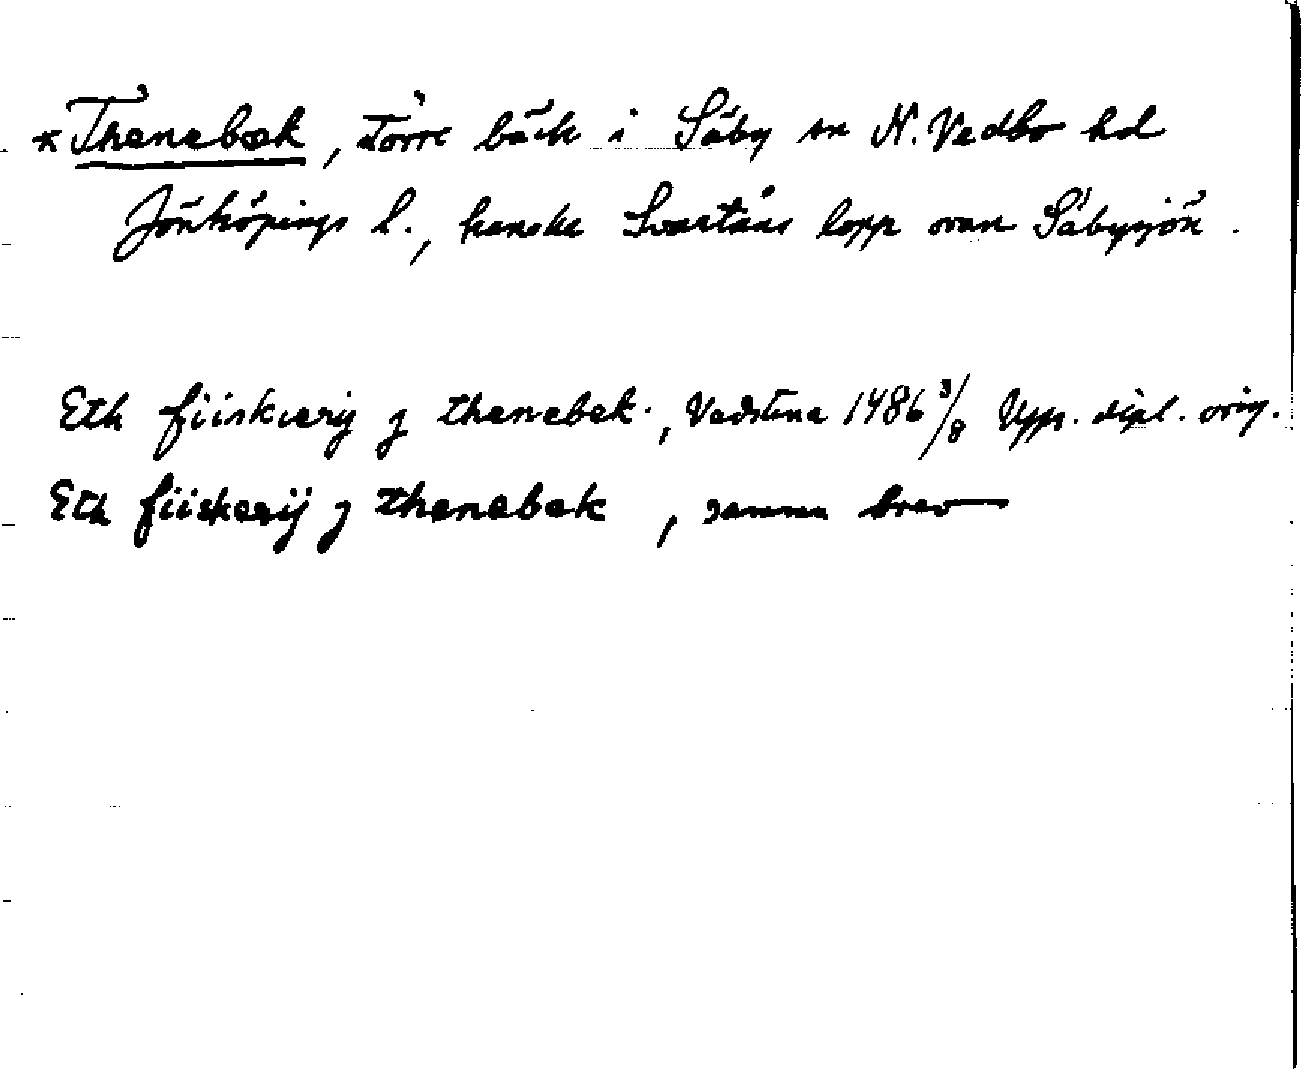 *Thenebæk, större bäck i Säby sn N. Vedbo hd
Jönköpings l., kanske Svartåns lopp ovan Säbysjön.
Eth fiiskærij j thenebek, Vadstena 1486 3/8 Upps. dipl. orig.
Eth fiiskærij j thenebæk, samma brev